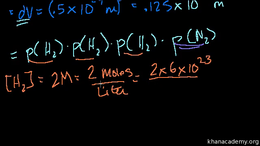 = dV = (.5 × 10 m) = .125 × 10 m
= p(H₂) · p(H₂) · p(H₂) · p(N₂)
[H₂] = 2M = 2 moles / Liter = 2 × 6 × 10²³
khanacademy.org